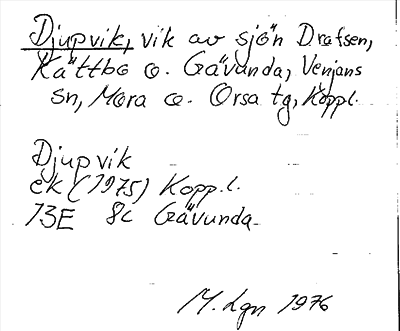 Djupvik, vik av sjön Drafsen,
Kättbo o. Gävunda, Venjans
sn, Mora o. Orsa tg, Kopp.l.
Djupvik
ek (1975) Kopp.l.
13E 8c Gävunda
M. Lgn 1976